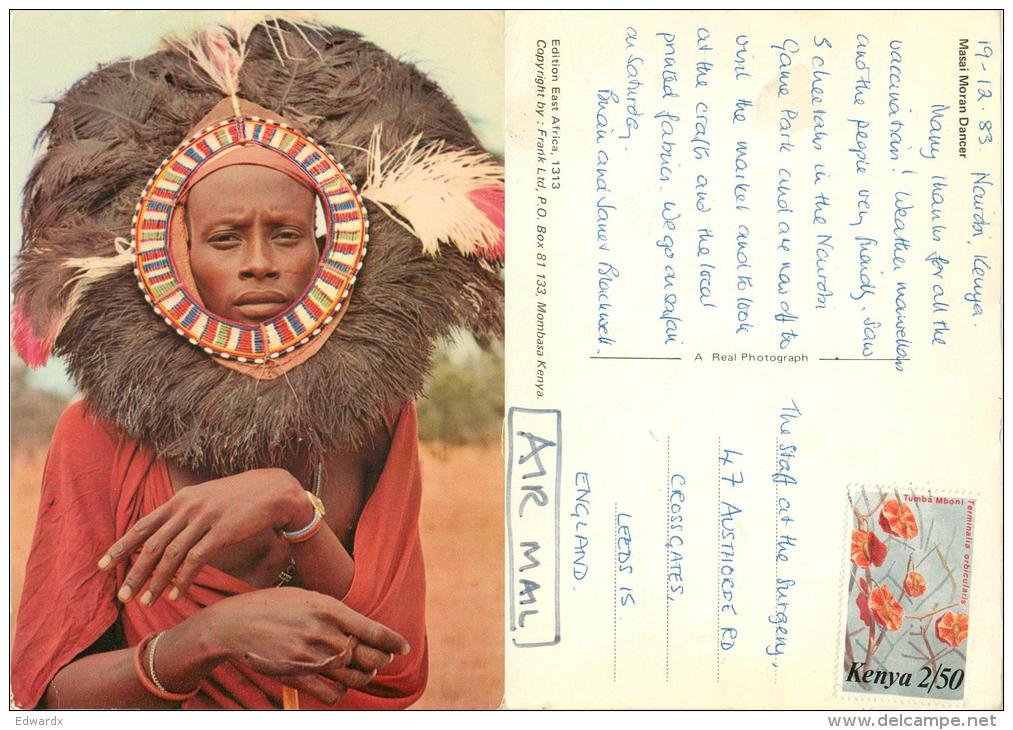 Masai Moran Dancer
19-12-83. Nairobi, Kenya.
Many thanks for all the
vaccinations! Weather marvellous
and the people very friendly. Saw
3 cheetahs in the Nairobi
Game Park and are now off to
visit the market and to look
at the crafts and the local
printed fabrics. We go on safari
on Saturday.
Brian and Janet Blackwell.
Edition East Africa, 1313
Copyright by : Frank Ltd, P.O. Box 81 133, Mombasa Kenya.
A Real Photograph
The Staff at the Surgery,
47 AUSTHORPE RD
CROSSGATES,
LEEDS 15
ENGLAND.
AIR MAIL
Terminalia orbicularis
Tumba Mboni
Kenya 2/50
Edwardx
delcampe.net